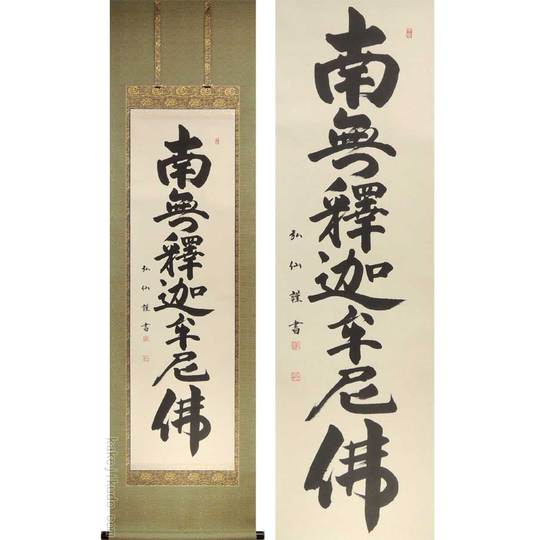 南無釋迦牟尼佛
弘仙謹書
南無釋迦牟尼佛
弘仙謹書